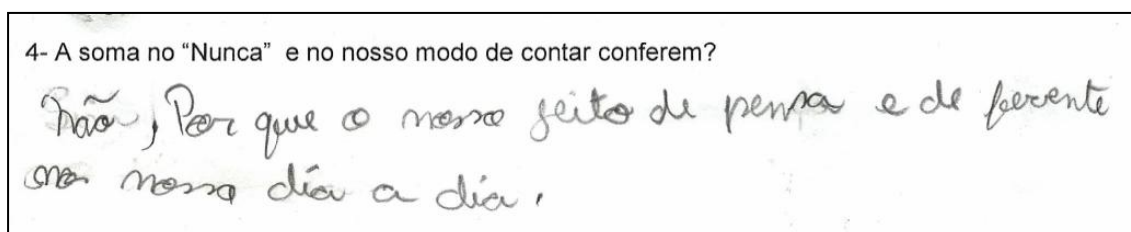 4- A soma no “Nunca” e no nosso modo de contar conferem?
não, Por que o nosso jeito de pensa e de ferente
no nosso dia a dia.